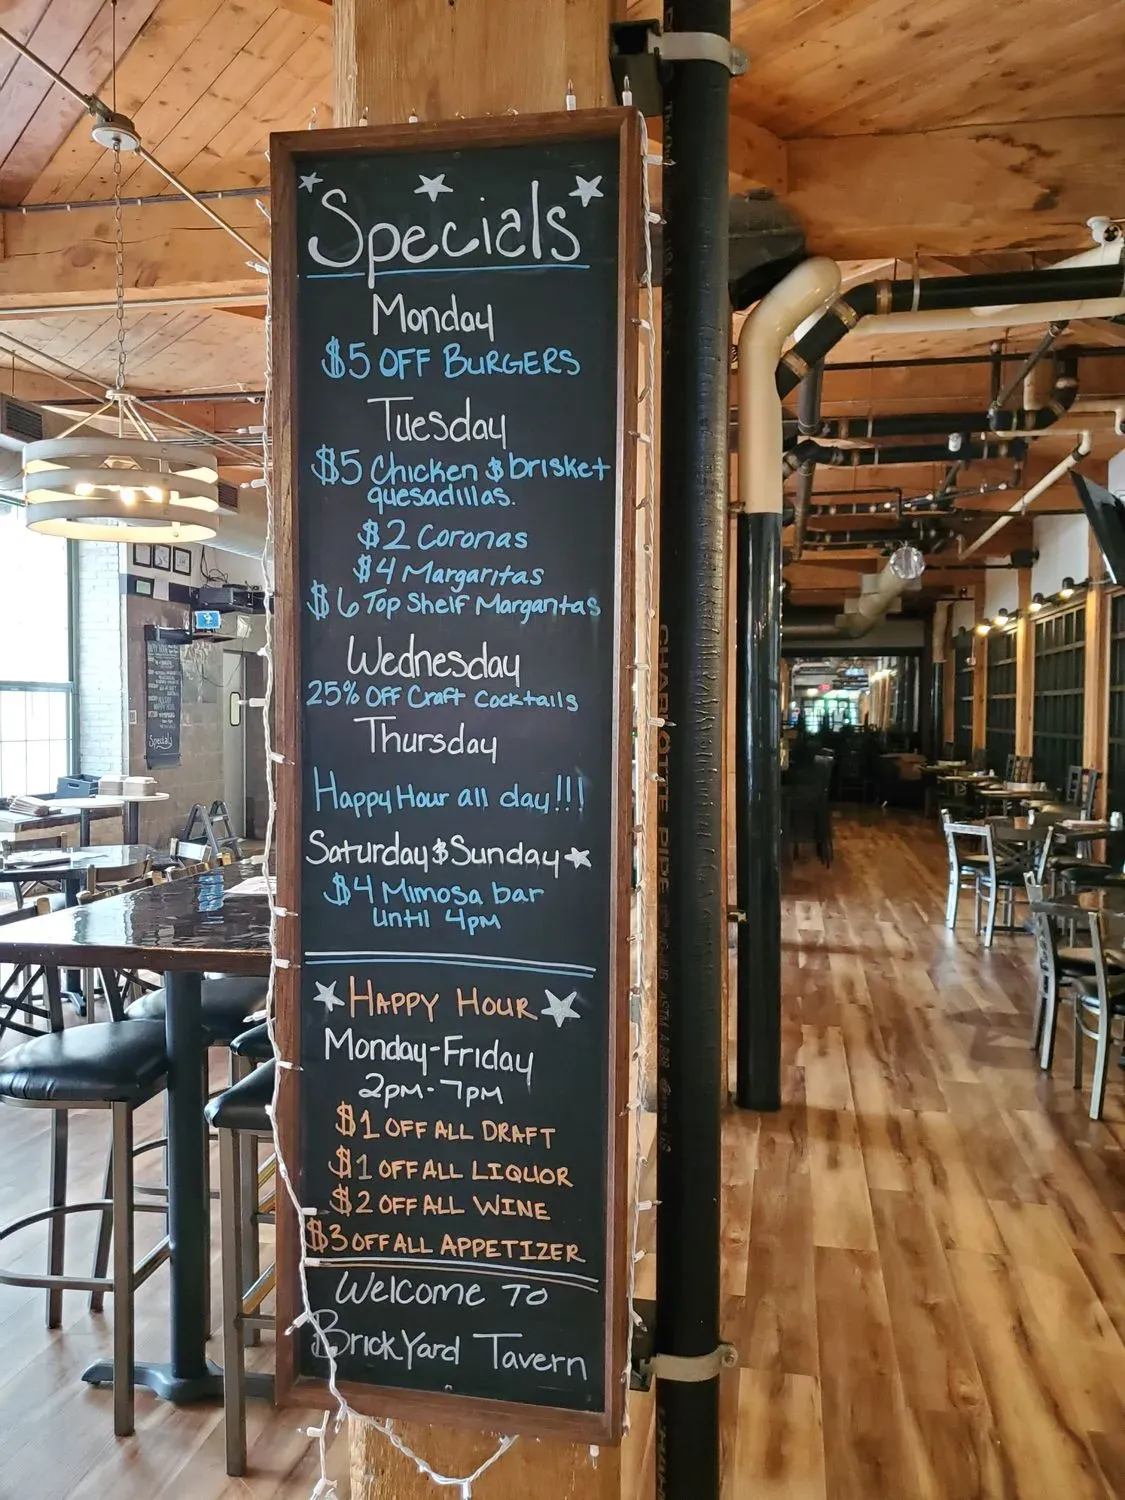 Specials
Monday
$5 OFF BURGERS
Tuesday
$5 Chicken & brisket
quesadillas.
$2 Coronas
$4 Margaritas
$6 Top Shelf Margaritas
Wednesday
25% OFF Craft Cocktails
Thursday
Happy Hour all day!!!
Saturday & Sunday
$4 Mimosa bar
until 4pm
HAPPY HOUR
Monday-Friday
2pm-7pm
$1 OFF ALL DRAFT
$1 OFF ALL LIQUOR
$2 OFF ALL WINE
$3 OFF ALL APPETIZER
Welcome To
BrickYard Tavern
CHARLOTTE PIPE
Specials